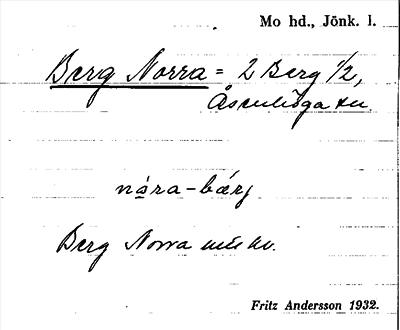 Mo hd., Jönk. l.
Berg Norra = 2 Berg 1/2,
Åsenhöga sn
nạ̊ra-bærj
Berg Norra
Fritz Andersson 1932.